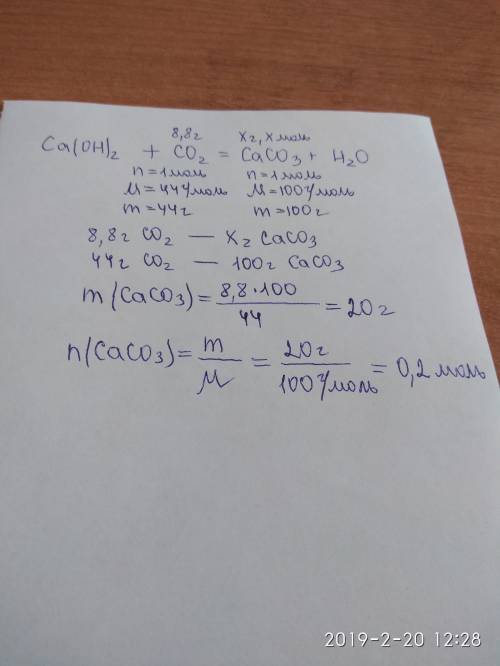 8,8г xг, x моль
Ca(OH)₂ + CO₂ = CaCO₃ + H₂O
n = 1 моль n = 1 моль
M = 44 г/моль M = 100 г/моль
m = 44 г m = 100 г
8,8 г CO₂ — xг CaCO₃
44 г CO₂ — 100 г CaCO₃
m(CaCO₃) = 8,8·100 / 44 = 20 г
n(CaCO₃) = m / M = 20 г / 100 г/моль = 0,2 моль
2019-2-20 12:28